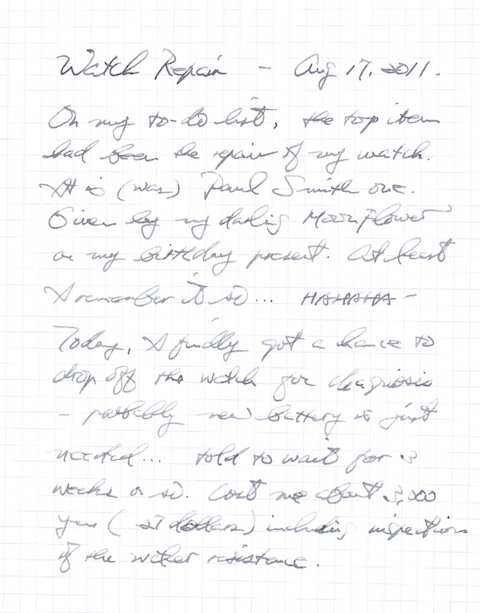 Watch Repair - Aug 17, 2011.
On my to-do list, the top item
had been the repair of my watch.
It is (was) Paul Smith one.
Given by my darling Moonflower
as my birthday present. At least
I remember it so... HAHAHA -
Today, I finally got a chance to
drop off the watch for diagnosis
- probably new battery is just
needed... told to wait for 3
weeks or so. Cost me about 3,000
yen ( dollars) including inspections
of the water resistance.